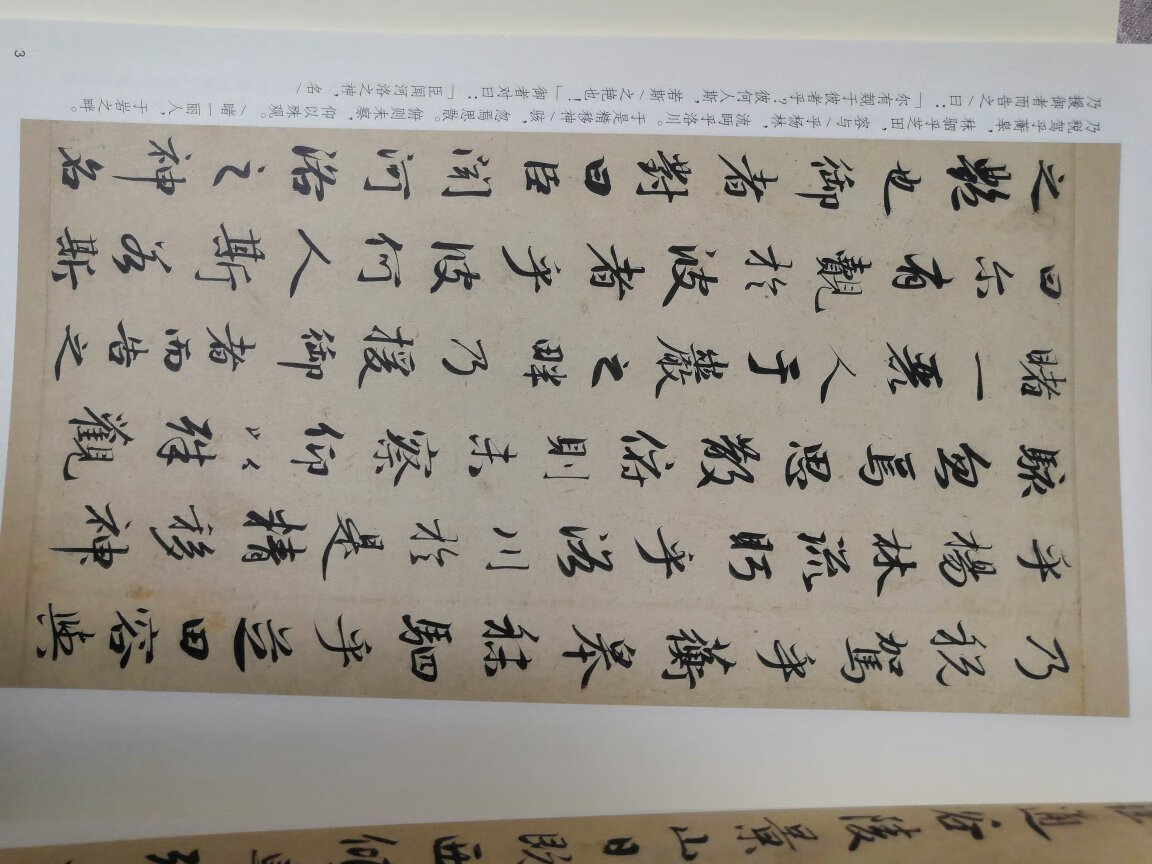 乃税駕乎蘅皋秣駟乎芝田容與
乎楊林流眄乎洛川於是精移神
駭忽焉思散俯則未察仰以殊觀
睹一麗人于巖之畔乃援御者而告之
曰尔有覿於彼者乎彼何人斯若斯
之艷也御者對曰臣聞河洛之神名
乃税驾乎蘅皋，秣驷乎芝田，容与/乎杨林，流眄乎洛川。于是精移神/骇，忽焉思散。俯则未察，仰以殊观。/睹一丽人，于岩之畔。
乃援御者而告之/曰：「尔有觌于彼者乎？彼何人斯，若斯/之艳也！」御者对曰：「臣闻河洛之神，名/
3
通谷陵景山日既西傾